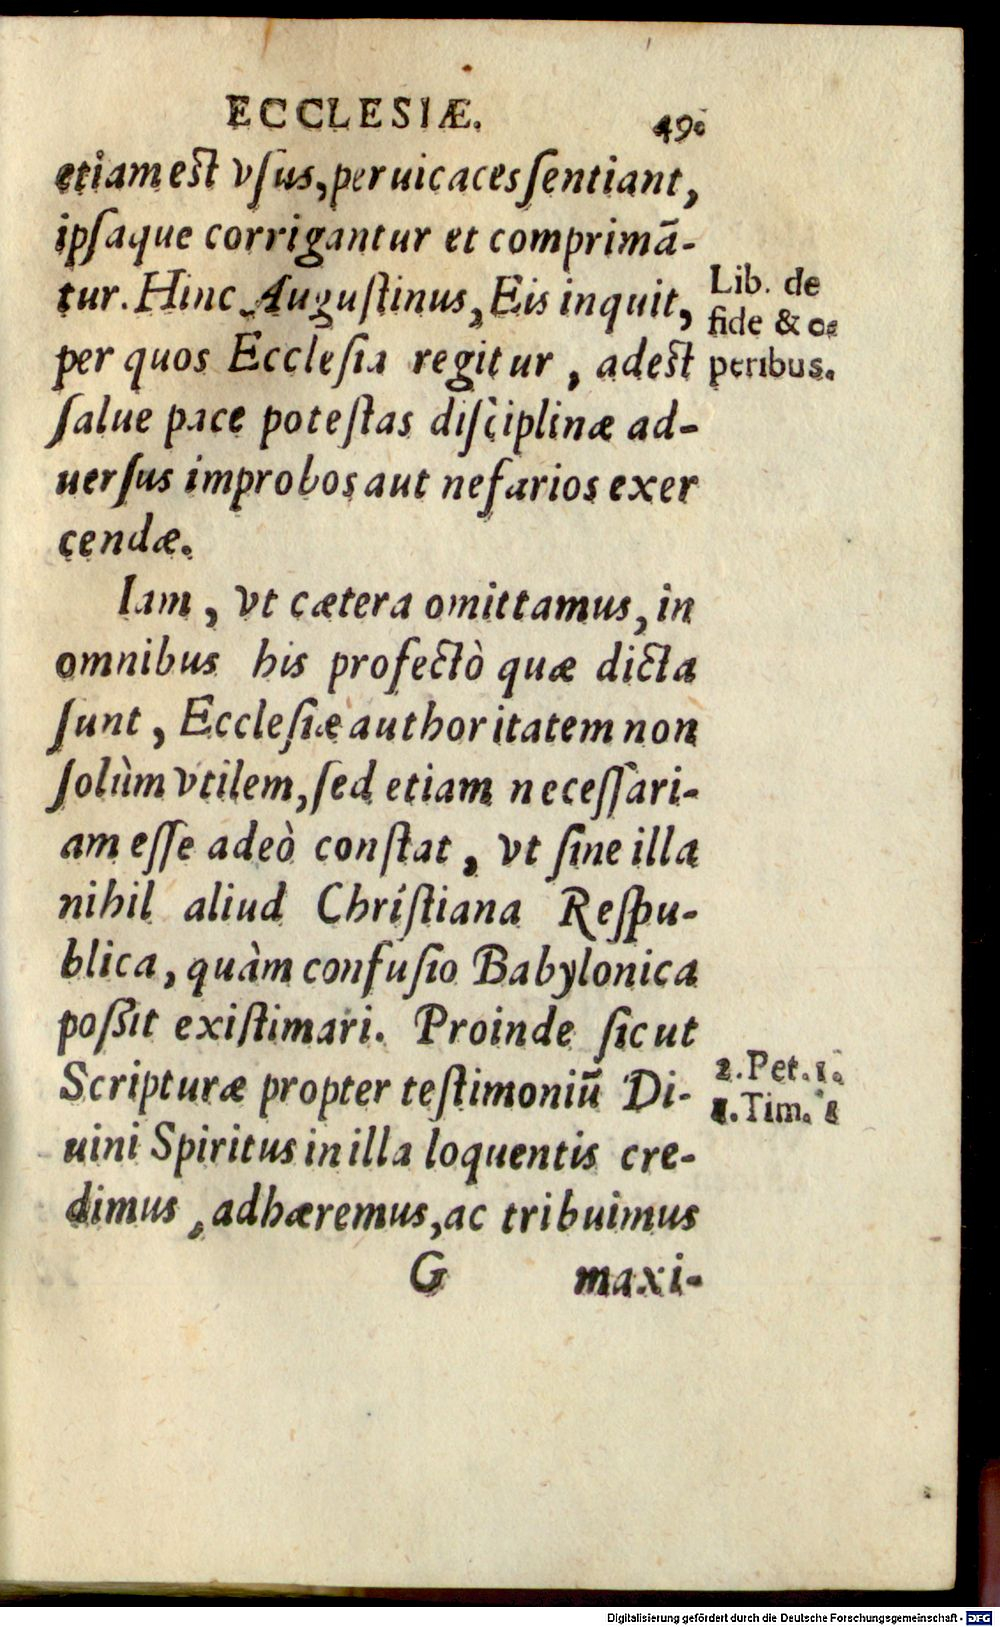 ECCLESIÆ. 49
etiam est vſus, peruicaces ſentiant,
ipſaque corrigantur et comprimā-
tur. Hinc Auguſtinus, Eis inquit,
per quos Eccleſia regitur, adest
ſalue pace poteſtas diſciplinæ ad-
uerſus improbos aut nefarios exer
cendæ.
Lib. de
fide & o-
peribus.
Iam, vt cætera omittamus, in
omnibus his profectò quæ dicta
ſunt, Eccleſiæ authoritatem non
ſolùm vtilem, ſed etiam neceſſari-
am eſſe adeò conſtat, vt ſine illa
nihil aliud Chriſtiana Reſpu-
blica, quàm confuſio Babylonica
poßit exiſtimari. Proinde ſicut
Scripturæ propter teſtimoniū Di-
uini Spiritus in illa loquentis cre-
dimus, adhæremus, ac tribuimus
2. Pet. 1.
Tim.
G maxi-
Digitalisierung gefördert durch die Deutsche Forschungsgemeinschaft - DFG